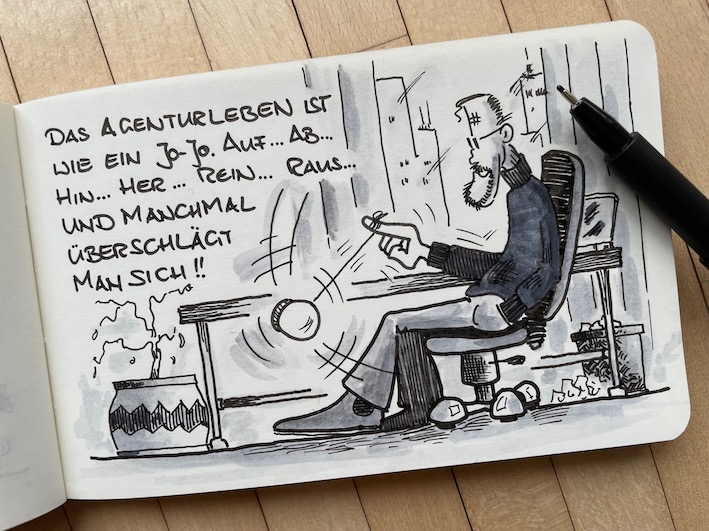 DAS AGENTURLEBEN IST
WIE EIN JO-JO. AUF... AB...
HIN... HER... REIN... RAUS...
UND MANCHMAL
ÜBERSCHLÄGT
MAN SICH!!